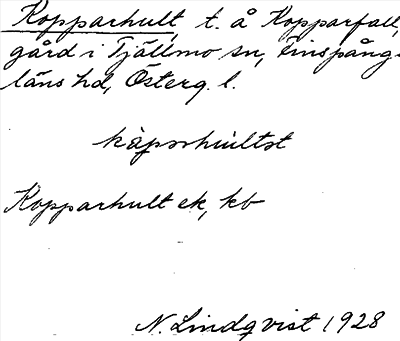 Kopparhult, t. å Kopparfall,
gård i Tjällmo sn, Finspånga-
läns hd, Österg. l.
Kopparhult ek, kb
N. Lindqvist 1928